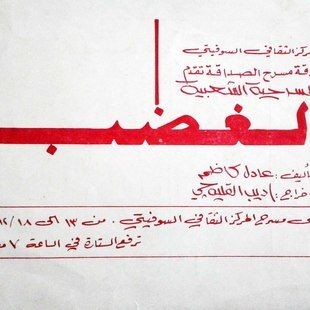 مركز الثقافي السوفيتي
قة مسرح الصداقة تقدم
لمسرحية الشعبية
الغضب
أليف: عادل كاظم
خراج: اديب القليه جي
ى مسرح المركز الثقافي السوفيتي . من ١٣ الى ١٨ /١٢
ترفع الستارة في الساعة ٧